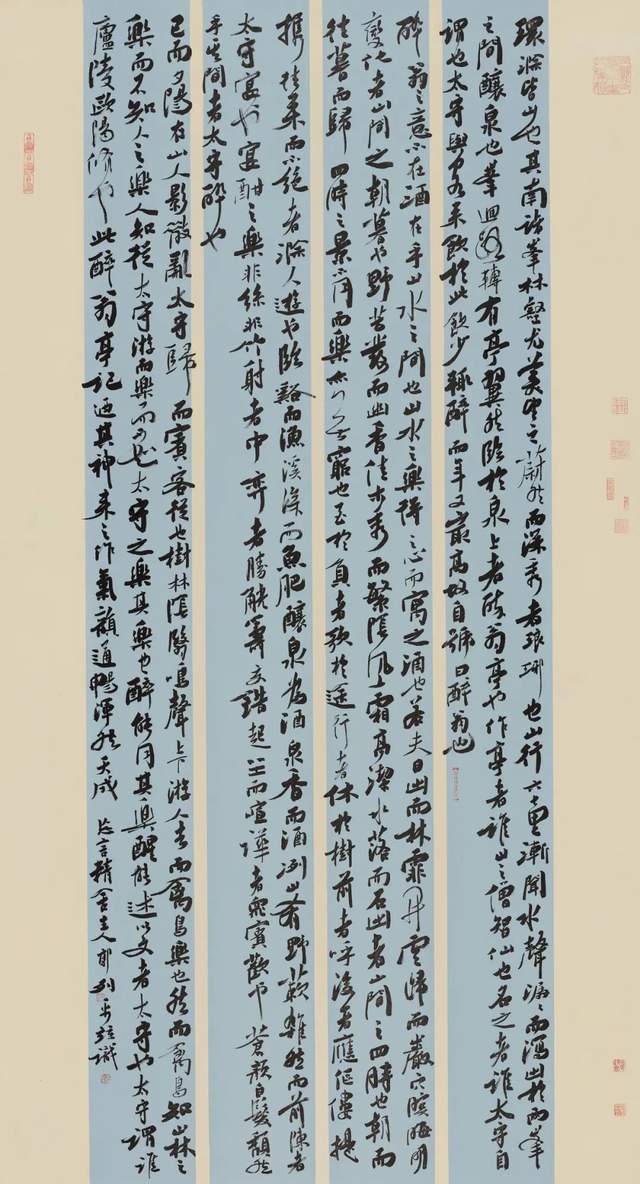 環滁皆山也其南諸峯林壑尤美望之蔚然而深秀者琅琊也山行六七里漸聞水聲潺々而瀉出於兩峯
之間釀泉也峯迴路轉有亭翼然臨於泉上者醉翁亭也作亭者誰山之僧智仙也名之者誰太守自
謂也太守與客來飲於此飲少輒醉而年又最高故自號曰醉翁也
醉翁之意不在酒在乎山水之間也山水之樂得之心而寓之酒也若夫日出而林霏開雲歸而巖穴暝晦明
變化者山間之朝暮也野芳發而幽香佳木秀而繁陰風霜高潔水落而石出者山間之四時也朝而
往暮而歸四時之景不同而樂亦無窮也至於負者歌於途行者休於樹前者呼後者應傴僂提
攜往來而不絕者滁人遊也臨谿而漁溪深而魚肥釀泉為酒泉香而酒洌山肴野蔌雜然而前陳者
太守宴也宴酣之樂非絲非竹射者中弈者勝觥籌交錯起坐而諠譁者眾賓歡也蒼顏白髮頹然
乎其間者太守醉也
已而夕陽在山人影散亂太守歸而賓客從也樹林陰翳鳴聲上下游人去而禽鳥樂也然而禽鳥知山林之
樂而不知人之樂人知從太守游而樂而不知太守之樂其樂也醉能同其樂醒能述以文者太守也太守謂誰
廬陵歐陽修也此醉翁亭記迺其神來之作氣韻通暢渾然天成 言精舍主人 識